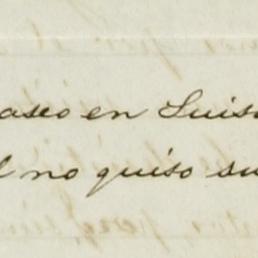 aseo en Suis
l no quiso su